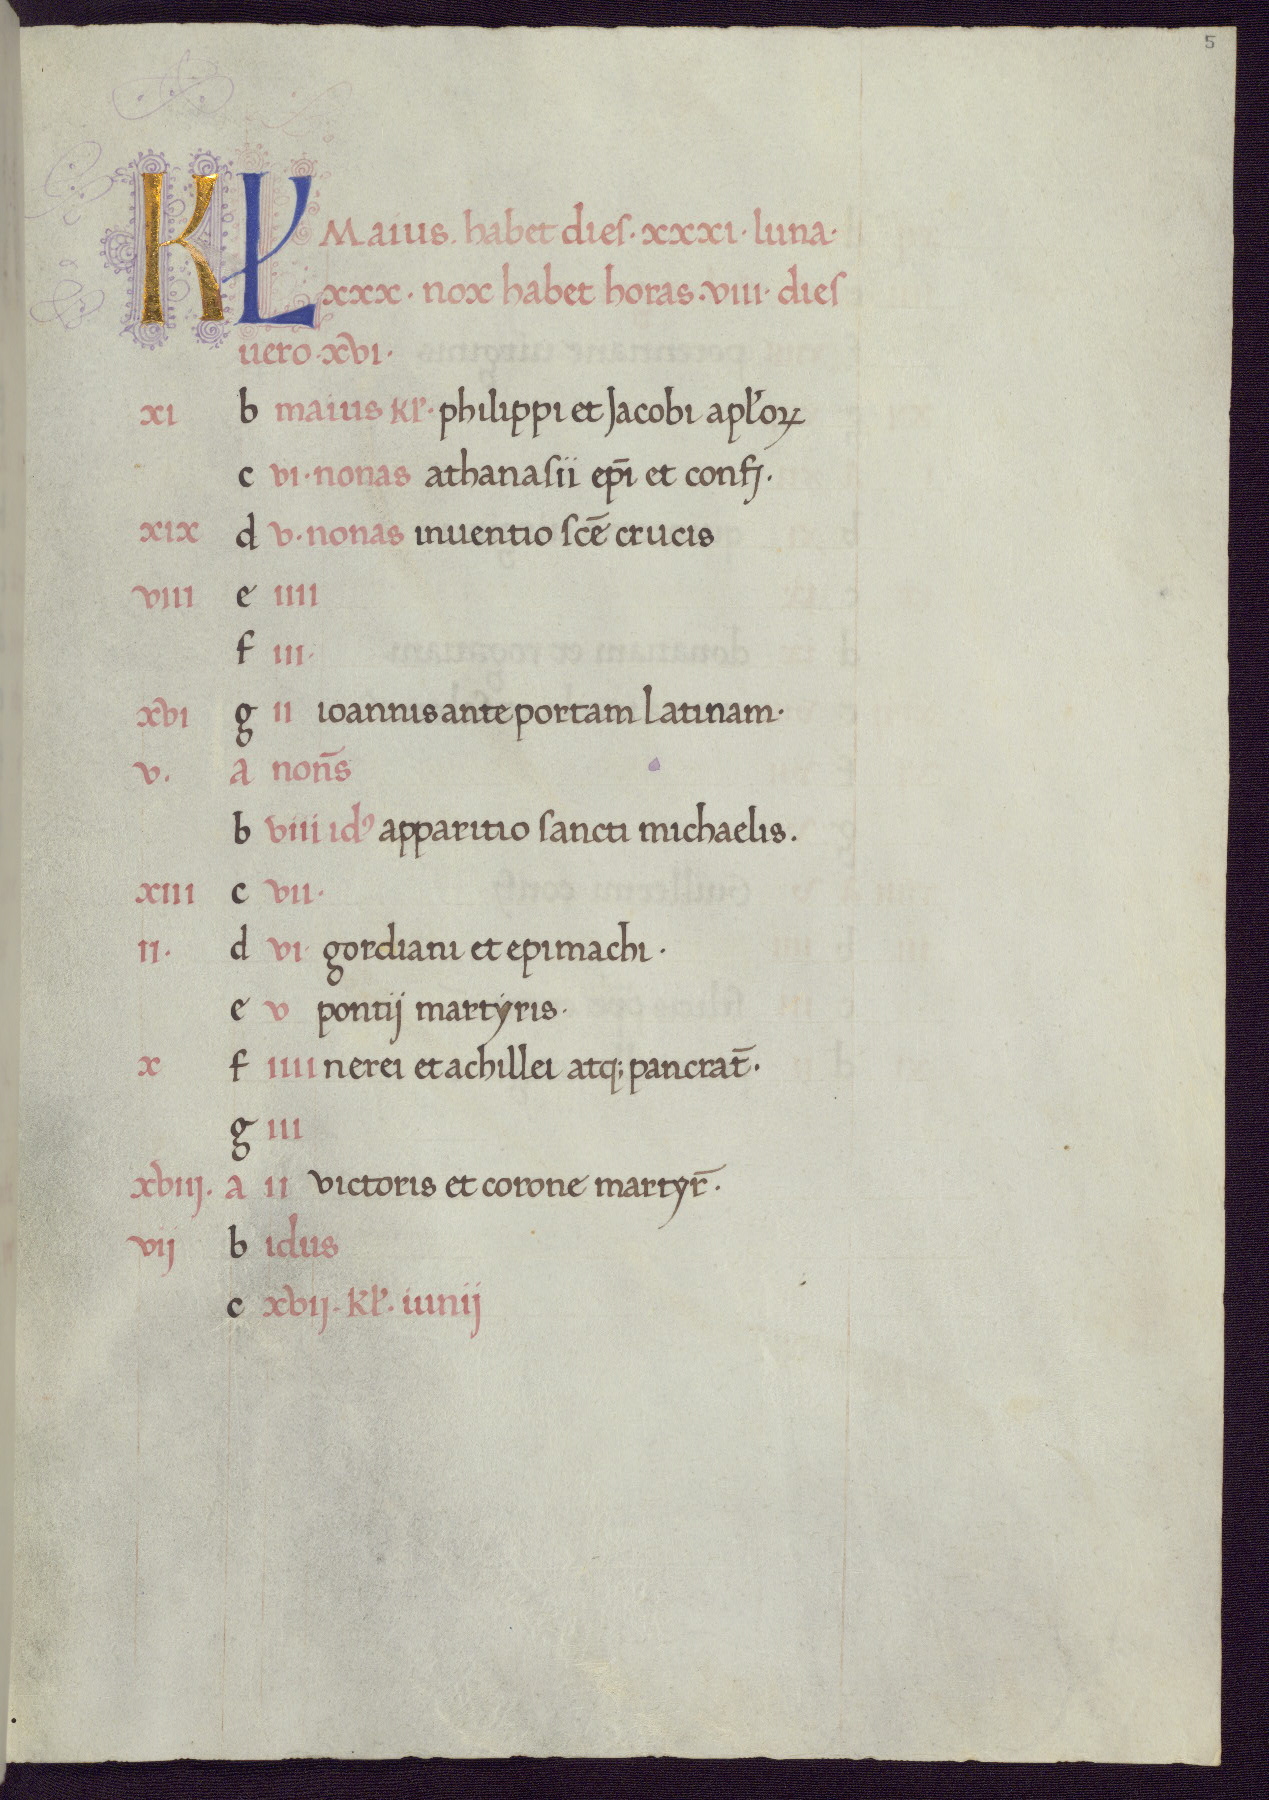 5
KL Maius. habet dies· xxxi· luna·
xxx· nox habet horas· viii· dies
uero· xvi·
xi b maius kl̃· philippi et Jacobi apl̃oꝝ
c vi· nonas athanasii ep̄i et conf̄·
xix d v· nonas inuentio sc̄e crucis
viii e iiii
f iii·
xvi g ii ioannis ante portam Latinam·
v. a non̄s
b viii idꝰ apparitio sancti michaelis.
xiii c vii·
ii· d vi· gordiani et epimachi·
e v pontij martyris·
x f iiii nerei et achillei atq; pancrat̄·
g iii
xviij. a ii victoris et corone martyr̄·
vij b idus
c xvij· kl̃· iunij